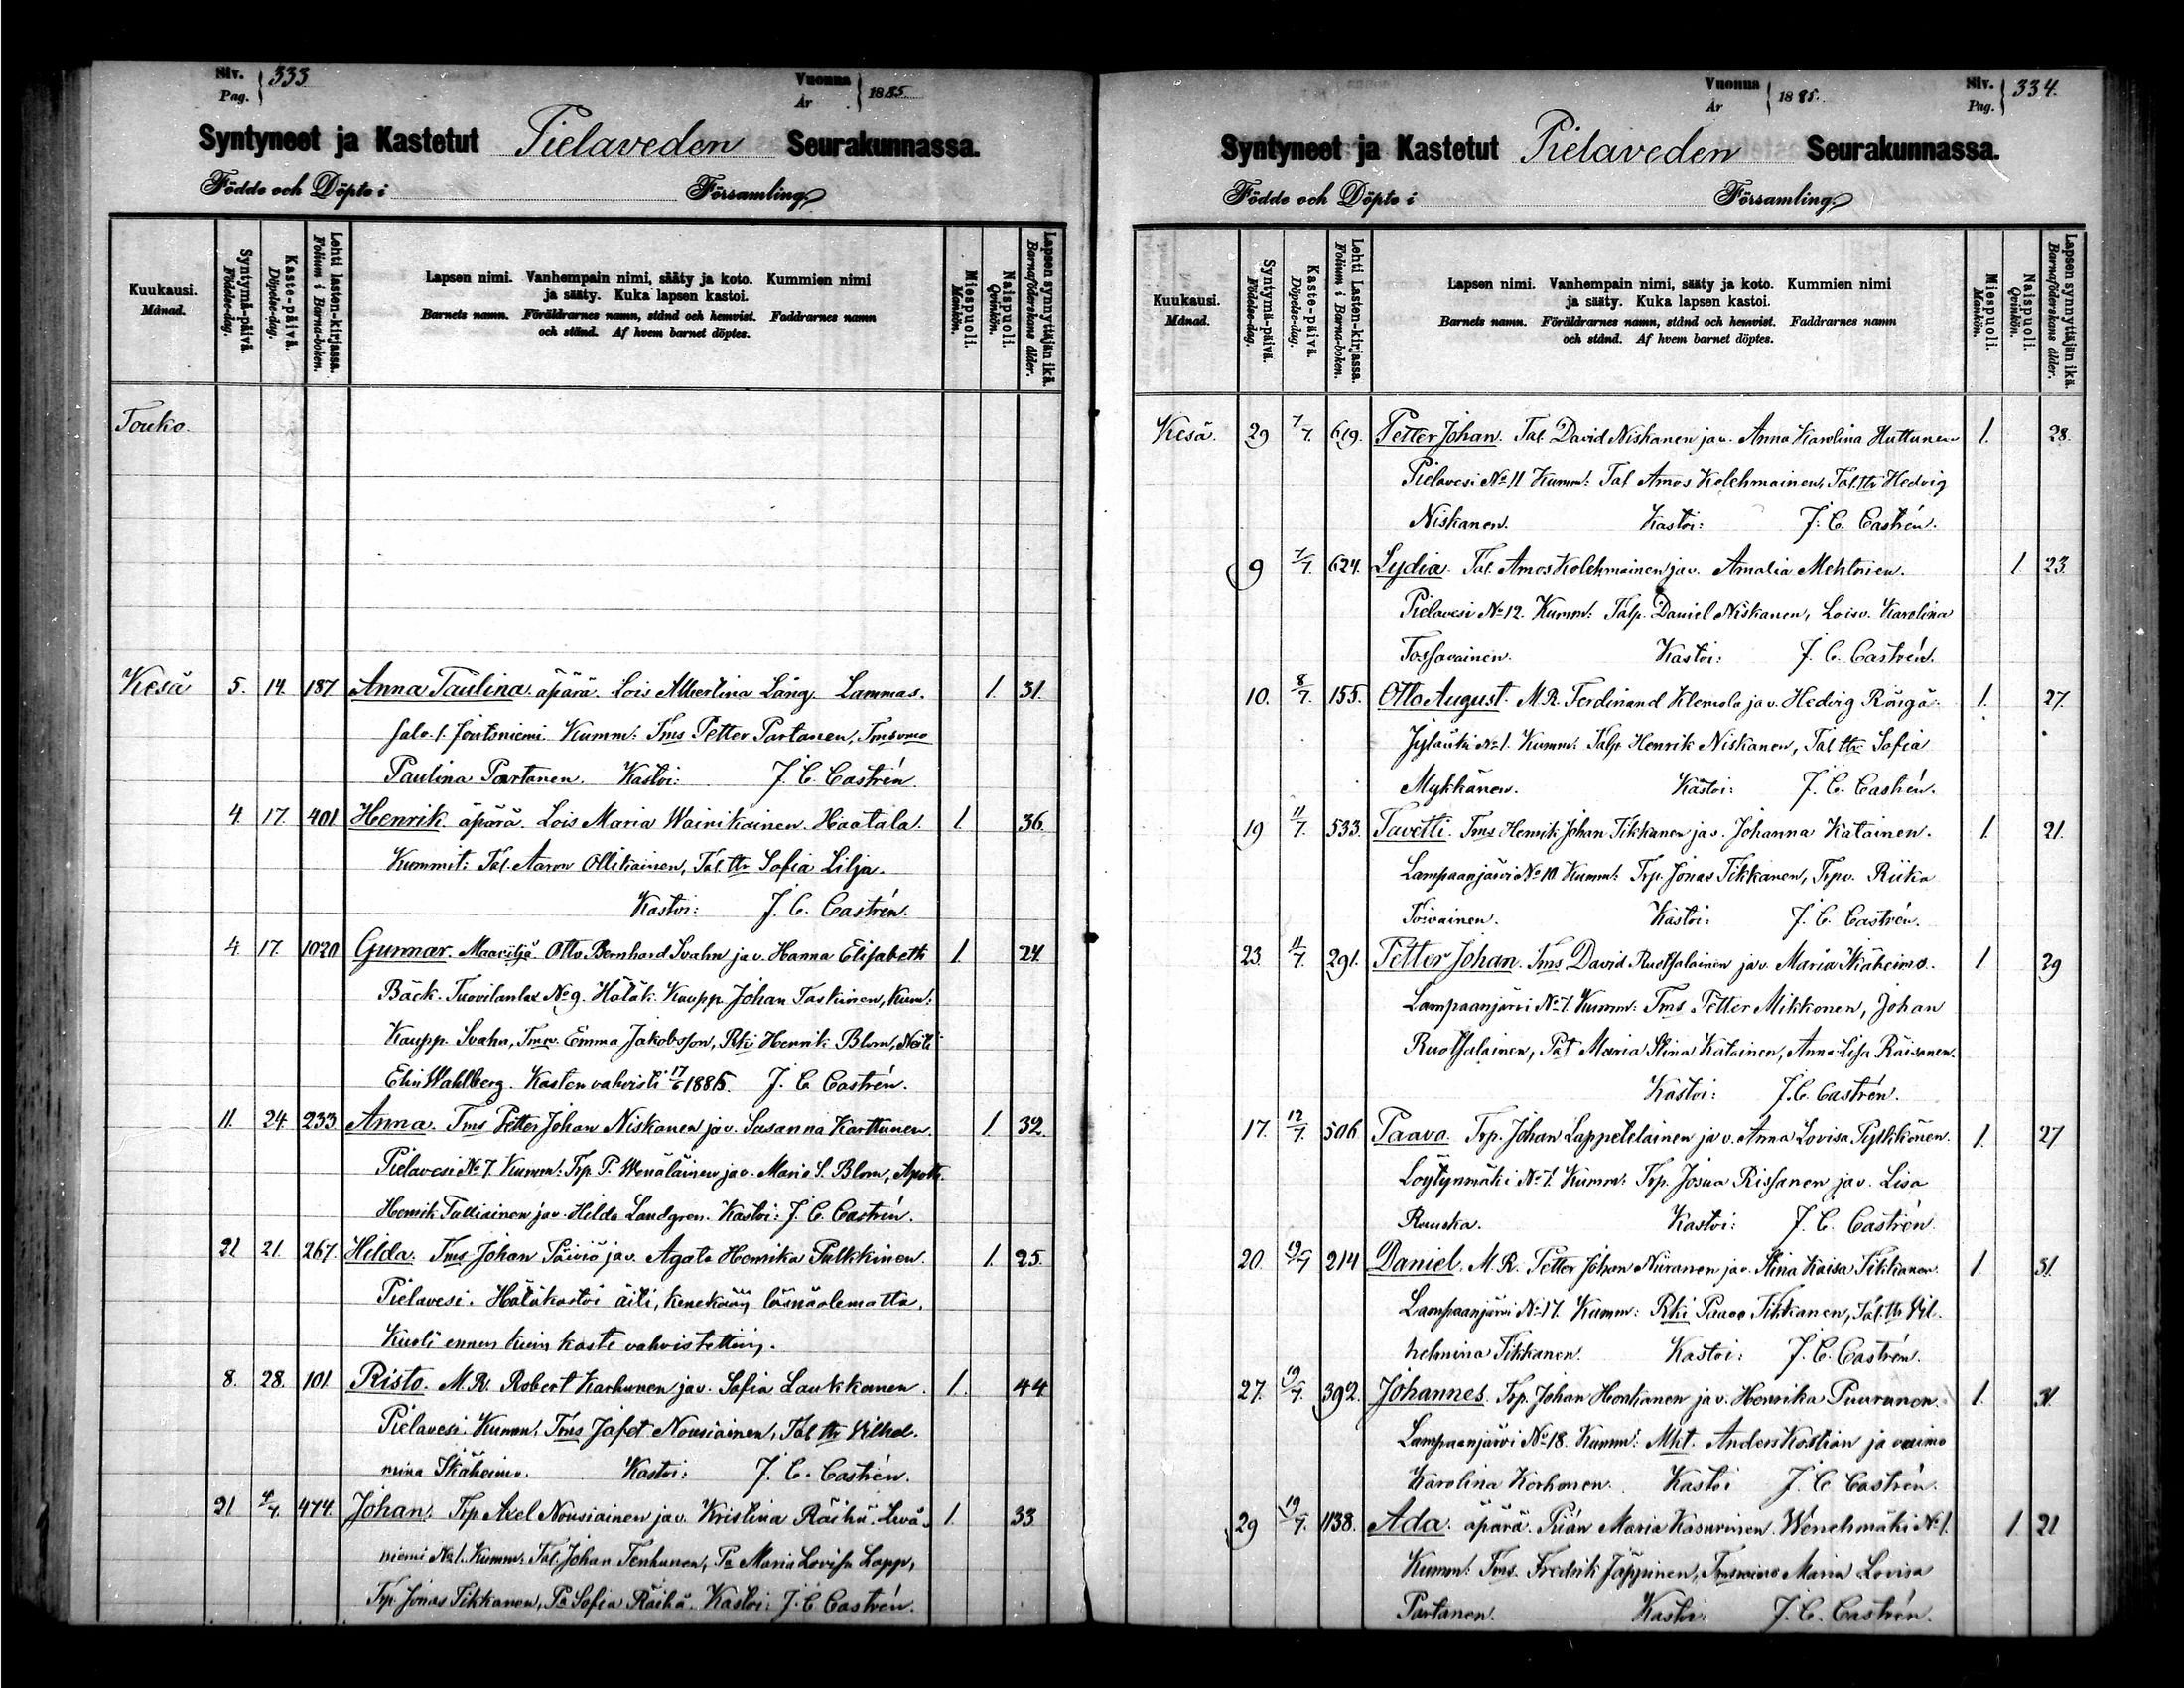 Siv. Pag. 333
Vuonna År 1885.
Syntyneet ja Kastetut Pielaveden Seurakunnassa.
Födde och Döpte i Församling
Kuukausi. Månad.
Syntymä-päivä. Födelse-dag.
Kaste-päivä. Döpelse-dag.
Lehti lasten-kirjassa. Folium i Barna-boken.
Lapsen nimi. Vanhempain nimi, sääty ja koto. Kummien nimi
ja sääty. Kuka lapsen kastoi.
Barnets namn. Föräldrarnes namn, stånd och hemvist. Faddrarnes namn
och stånd. Af hvem barnet döptes.
Miespuoli. Mankön.
Naispuoli. Qvinkön.
Lapsen synnyttäjän ikä. Barnaföderskans ålder.
Touko.
Kesä 5. 14. 187 Anna Paulina. äpärä. Lois Albertina Läng. Lammas- 1. 31.
salo 1. Joutsniemi Kumm: Tms Petter Partanen, Tmsvmo
Paulina Partanen. Kastoi: J. C. Castrén
4. 17. 401 Henrik. äpärä. Lois Maria Wainikainen. Haatala. 1. 36.
Kummit: Tal. Aaron Ollikainen, Tal. ttr Sofia Lilja.
Kastoi: J. C. Castrén.
4. 17. 1020 Gunnar. Maavilj. Otto Bernhard Svahn ja v. Hanna Elisabeth 1. 24.
Bäck. Tuovilanlax No 9. Hätäk. Kaupp. Johan Taskinen, Kum:
Kaupp. Svahn, Tmsv. Emma Jakobsson, Rki Henrik Blom, Neiti
Elin Wahlberg. Kasten vahvisti 17/6 1885. J. C. Castrén.
11. 24. 233 Anna. Tms Petter Johan Niskanen ja v. Susanna Karttunen. 1. 32.
Pielavesi No 7. Kumm: Trp. P. Wenäläinen ja v. Maria S. Blom, Apoth.
Henrik Talliainen ja v. Hilda Landgren. Kastoi: J. C. Castrén.
21 21. 267. Hilda. Tms Johan Päiviö ja v. Agata Henrika Pulkkinen. 1. 25.
Pielavesi. Hätäkastoi äiti, kenekään läsnäolematta.
Kuoli ennen kuin kaste vahvistettiin.
8. 28. 101. Risto. M. R. Robert Karhunen ja v. Sofia Laukkanen. 1. 44.
Pielavesi. Kumm. Tms Jafet Nousiainen, Tal. ttr Vilhel-
mina Ikäheimo. Kastoi: J. C. Castrén.
21 4/7. 474. Johan. Trp Axel Nousiainen ja v. Kristina Räihä. Levä- 1. 33.
niemi No 1. Kumm: Tal. Johan Tenhunen, Pa Maria Lovisa Lapp,
Trp. Jonas Tikkanen, Pa Sofia Räihä. Kastoi: J. C. Castrén.
Vuonna År 1885.
Siv. Pag. 334.
Syntyneet ja Kastetut Pielaveden Seurakunnassa.
Födde och Döpte i Församling
Kuukausi. Månad.
Syntymä-päivä. Födelse-dag.
Kaste-päivä. Döpelse-dag.
Lehti Lasten-kirjassa. Folium i Barna-boken.
Lapsen nimi. Vanhempain nimi, sääty ja koto. Kummien nimi
ja sääty. Kuka lapsen kastoi.
Barnets namn. Föräldrarnes namn, stånd och hemvist. Faddrarnes namn
och stånd. Af hvem barnet döptes.
Miespuoli. Mankön.
Naispuoli. Qvinkön.
Lapsen synnyttäjän ikä. Barnaföderskans ålder.
Kesä. 29 7/7. 619. Petter Johan. Tal. David Niskanen ja v. Anna Karolina Huttunen 1. 28.
Pielavesi No 11 Kumm: Tal Amos Kolehmainen, Tal. ttr Hedvig
Niskanen. Kastoi: J. C. Castrén.
9 7/7. 624. Lydia. Tal. Amos Kolehmainen ja v. Amalia Mehtonen. 1 23.
Pielavesi No 12. Kumm: Talp. Daniel Niskanen, Loisv. Karolina
Tossavainen. Kastoi: J. C. Castrén.
10. 8/7. 155. Otto August. M. R. Ferdinand Klemola ja v. Hedvig Röngä. 1. 27.
Jylänki No 1. Kumm. Talp. Henrik Niskanen, Tal ttr Sofia
Mykkänen. Kastoi: J. C. Castrén.
19 11/7. 533. Taavetti. Tms Henrik Johan Tikkanen ja v. Johanna Katainen. 1. 21.
Lampaanjärvi No 10. Kumm: Trp. Jonas Tikkanen, Trpv. Riika
Toivainen. Kastoi: J. C. Castrén.
23. 11/7. 291. Petter Johan. Tms David Ruotsalainen ja v. Maria Ikäheimo. 1 39
Lampaanjärvi No 7. Kumm: Tms Petter Mikkonen, Johan
Ruotsalainen, Pat Maria Stina Katainen, Anna Lisa Räisänen.
Kastoi: J. C. Castrén.
17. 12/7. 506. Paavo. Trp. Johan Lappeteläinen ja v. Anna Lovisa Pylkkönen. 1. 27
Löytynmäki No 7. Kumm: Trp. Josua Rissanen ja v. Lisa
Ruuska. Kastoi: J. C. Castrén.
20. 19/7 214 Daniel. M. R. Petter Johan Niiranen ja v. Stina Kaisa Tikkanen. 1. 31.
Lampaanjärvi No 17. Kumm: Rki Paavo Tikkanen, Tal. ttr Vil-
helmina Tikkanen. Kastoi: J. C. Castrén.
27. 19/7. 392. Johannes. Trp. Johan Honkanen ja v. Henrika Puuranen. 1. 31.
Lampaanjärvi No 18. Kumm: Mkt. Anders Kostian ja vaimo
Karolina Korhonen. Kastoi J. C. Castrén.
29 19/7. 1138. Ada. äpärä. Piian Maria Kasurinen. Wenehmäki No 1. 1. 21
Kumm: Tms. Fredrik Jäppinen, Tmsvaimo Maria Lovisa
Partanen. Kastoi: J. C. Castrén.